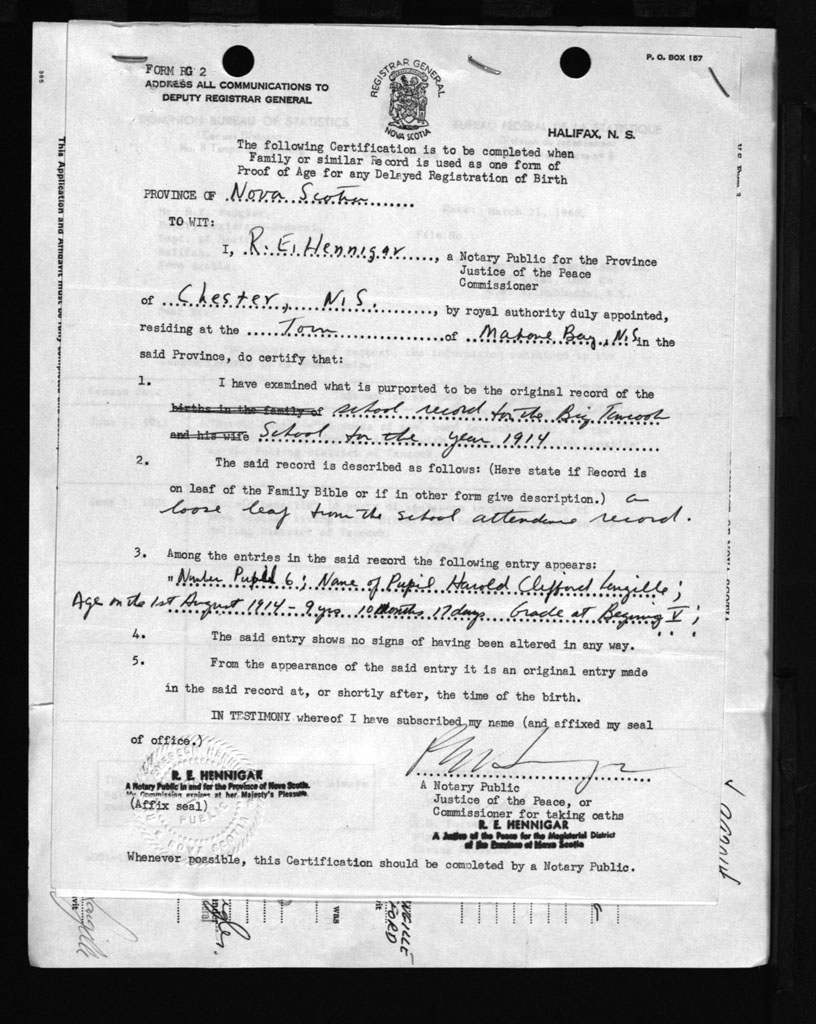 FORM RG 2
ADDRESS ALL COMMUNICATIONS TO
DEPUTY REGISTRAR GENERAL
REGISTRAR GENERAL
NOVA SCOTIA
P. O. BOX 157
HALIFAX, N. S.
The following Certification is to be completed when
Family or similar Record is used as one form of
Proof of Age for any Delayed Registration of Birth
PROVINCE OF Nova Scotia
TO WIT:
I, R. E. Hennigar, a Notary Public for the Province
Justice of the Peace
Commissioner
of Chester, N.S., by royal authority duly appointed,
residing at the Town of Mahone Bay, N.S. in the
said Province, do certify that:
1. I have examined what is purported to be the original record of the
births in the family of school record for the Big Tancook
and his wife School for the year 1914
2. The said record is described as follows: (Here state if Record is
on leaf of the Family Bible or if in other form give description.) a
loose leaf from the school attendance record.
3. Among the entries in the said record the following entry appears:
"Number Pupil 6; Name of Pupil Harold Clifford Langille;
Age on the 1st August 1914 - 9 yrs 10 months 17 days Grade at Begining V;
4. The said entry shows no signs of having been altered in any way.
5. From the appearance of the said entry it is an original entry made
in the said record at, or shortly after, the time of the birth.
IN TESTIMONY whereof I have subscribed my name (and affixed my seal
of office.)
R. E. HENNIGAR
A Notary Public in and for the Province of Nova Scotia.
My Commission expires at her Majesty's Pleasure
(Affix seal)
PUBLIC
NOVA SCOTIA
A Notary Public
Justice of the Peace, or
Commissioner for taking oaths
R. E. HENNIGAR
A Justice of the Peace for the Magisterial District
of the Province of Nova Scotia
Whenever possible, this Certification should be completed by a Notary Public.
This Application and Affidavit must be